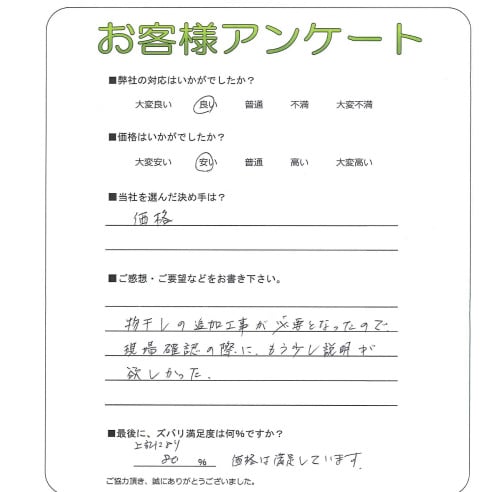 お客様アンケート
■弊社の対応はいかがでしたか？
大変良い 良い 普通 不満 大変不満
■価格はいかがでしたか？
大変安い 安い 普通 高い 大変高い
■当社を選んだ決め手は？
価格
■ご感想・ご要望などをお書き下さい。
物干しの追加工事が必要となったので、
現場確認の際に、もう少し説明が
欲しかった。
■最後に、ズバリ満足度は何%ですか？
上記により
80 % 価格は満足しています。
ご協力頂き、誠にありがとうございました。